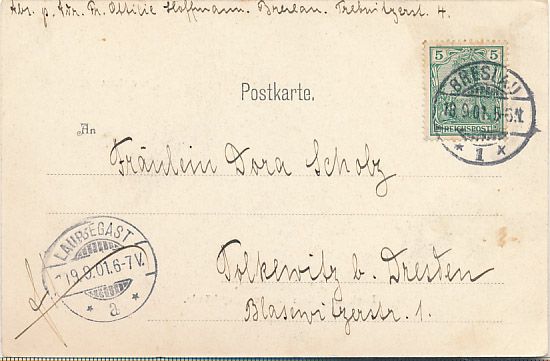 Abs. p. Adr. Fr. Ottilie Hoffmann. Breslau. Trebnitzerst. 4.
5 5
REICHSPOST
BRESLAU
18.9.01.5-6.N.
* 1 *
Postkarte.
An
Fräulein Dora Scholz
LAUBEGAST
19.9.01.6-7V.
* a *
Tolkewitz b. Dresden
Blasewitzerstr. 1.